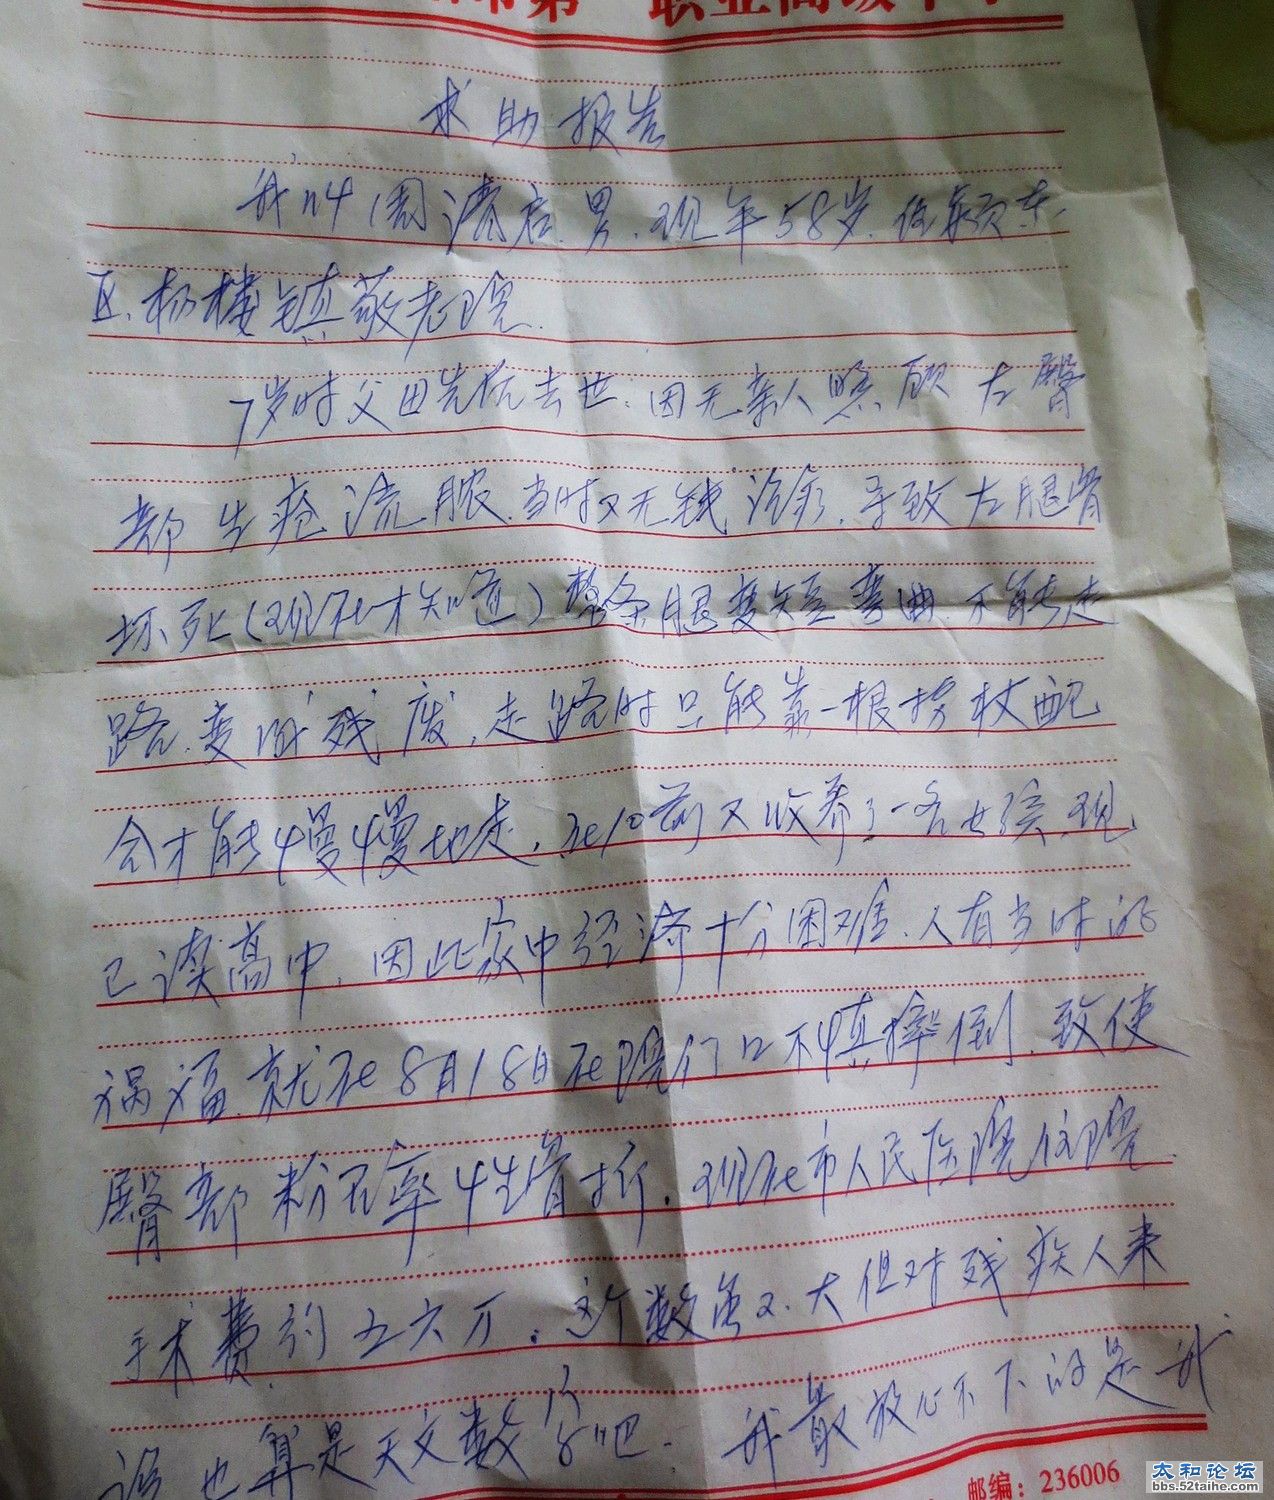 职业高级中学
求助报告
我叫周清启.男.现年58岁.住颍东
区.杨楼镇敬老院.
7岁时父母先后去世.因无亲人照顾左臀
部生疮流脓.当时又无钱治疗.导致左腿骨
坏死(现在才知道)整条腿变短弯曲.不能走
路.变成残废.走路时只能靠一根拐杖配
合才能慢慢地走.在10前又收养了一名女孩.现
已读高中.因此家中经济十分困难.人有当时的
祸福.就在8月18日在院门口不慎摔倒.致使
臀部粉碎性骨折.现在市人民医院住院.
手术费约五六万.这个数虽不大但对残疾人来
说也算是天文数字吧.我最放心不下的是我
邮编：236006
太和论坛
bbs.52taihe.com